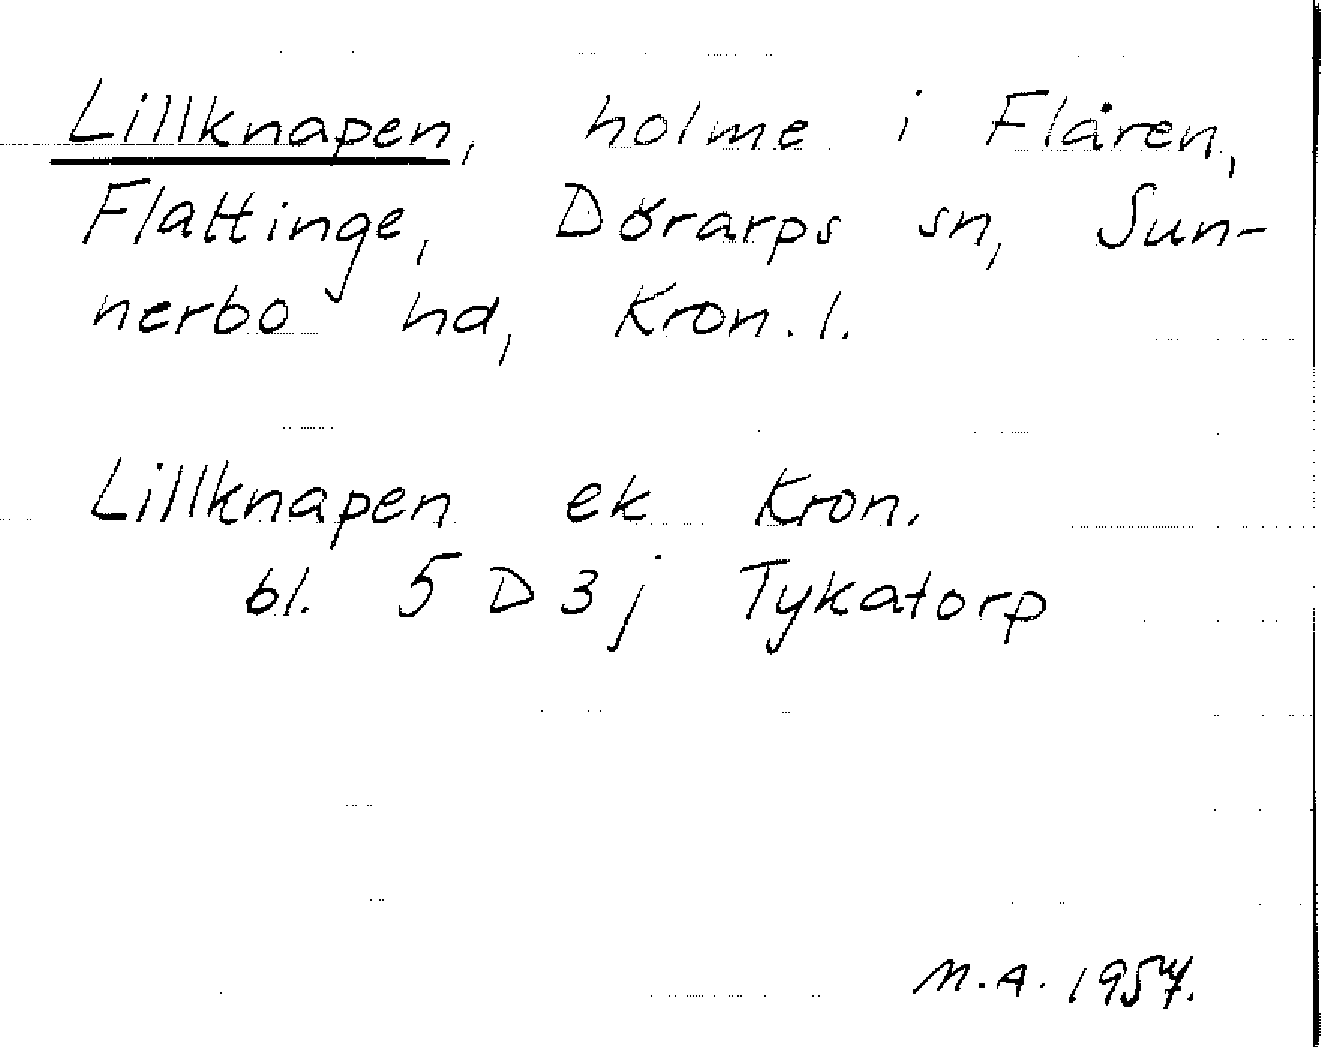 Lillknapen, holme i Flåren,
Flattinge, Dörarps sn, Sun-
nerbo hd, Kron. l.
Lillknapen ek Kron.
bl. 5 D 3j Tykatorp
M.A. 1957.